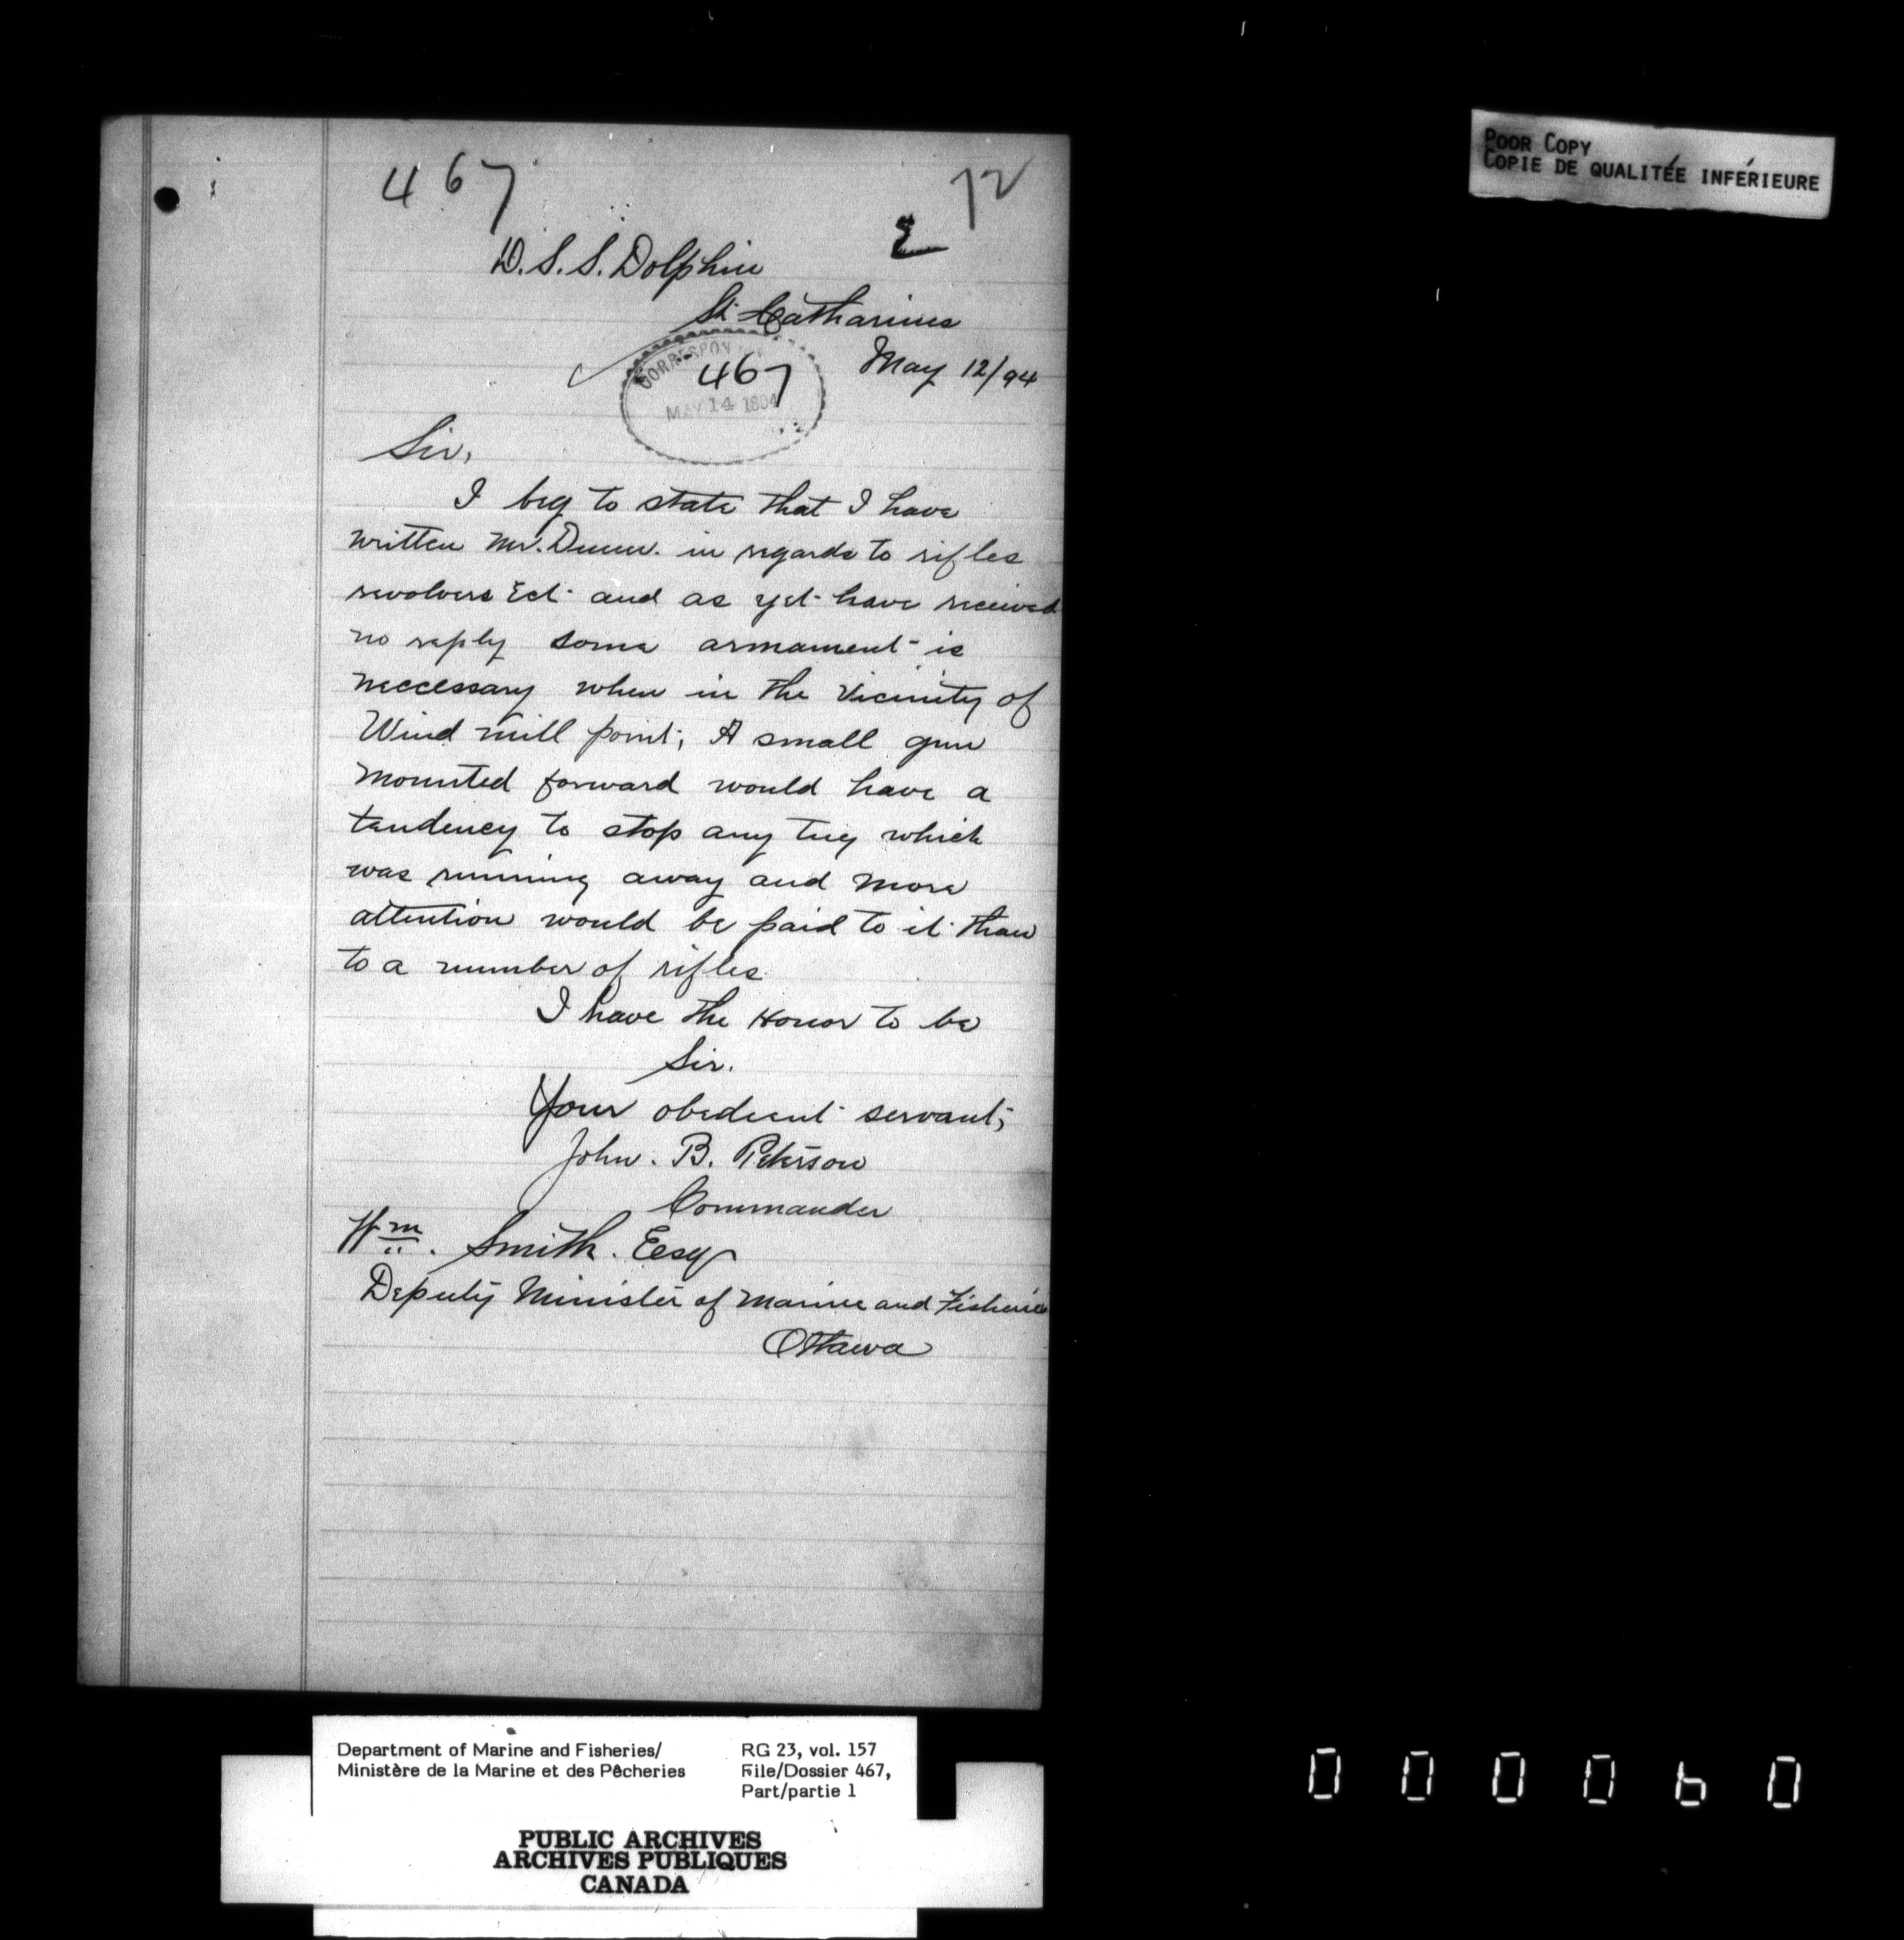 POOR COPY
COPIE DE QUALITÉE INFÉRIEURE
467
72
2
D.S.S. Dolphin
St Catharines
May 12/94
CORRESPON
467
MAY 14 1894
Sir,
I beg to state that I have
written Mr. Dunn. in regards to rifles
revolvers Ect. and as yet have received
no reply some armament is
neccessary when in the Vicinity of
Wind mill point; A small gun
mounted forward would have a
tendency to stop any tug which
was running away and more
attention would be paid to it than
to a number of rifles
I have the Honor to be
Sir.
Your obedient servant;
John. B. Peterson
Commander
Wm. Smith. Eesq
Deputy Minister of Marine and Fisheries
Ottawa
Department of Marine and Fisheries/
Ministère de la Marine et des Pêcheries
RG 23, vol. 157
File/Dossier 467,
Part/partie 1
PUBLIC ARCHIVES
ARCHIVES PUBLIQUES
CANADA
000060